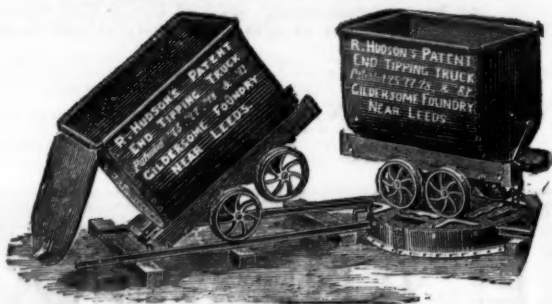 R. HUDSON'S PATENT
END TIPPING TRUCK
77 78 &
GILDERSOME FOUNDRY
NEAR LEEDS.
R. HUDSON'S PATENT
END TIPPING TRUCK
77, 78, &
GILDERSOME FOUNDRY
NEAR LEEDS